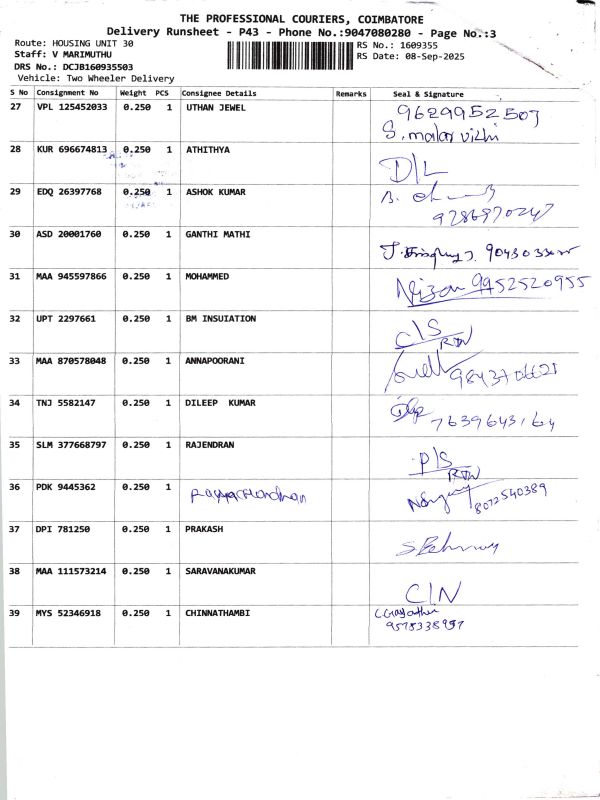 THE PROFESSIONAL COURIERS, COIMBATORE
Delivery Runsheet - P43 - Phone No.:9047080280 - Page No.:3
Route: HOUSING UNIT 30
Staff: V MARIMUTHU
DRS No.: DCJB160935503
Vehicle: Two Wheeler Delivery
RS No.: 1609355
RS Date: 08-Sep-2025
S No Consignment No Weight PCS Consignee Details Remarks Seal & Signature
27 VPL 125452033 0.250 1 UTHAN JEWEL 9629952507
S. malar vizhi
28 KUR 696674813 0.250 1 ATHITHYA D/L
29 EDQ 26397768 0.250 1 ASHOK KUMAR B.
9286970247
30 ASD 20001760 0.250 1 GANTHI MATHI
31 MAA 945597866 0.250 1 MOHAMMED Nizar 9952520955
32 UPT 2297661 0.250 1 BM INSUIATION C/S
RTN
33 MAA 870578048 0.250 1 ANNAPOORANI 9843706621
34 TNJ 5582147 0.250 1 DILEEP KUMAR 7639643164
35 SLM 377668797 0.250 1 RAJENDRAN P/S
RTN
36 PDK 9445362 0.250 1 8072540389
37 DPI 781250 0.250 1 PRAKASH
38 MAA 111573214 0.250 1 SARAVANAKUMAR C/N
39 MYS 52346918 0.250 1 CHINNATHAMBI
9575338957